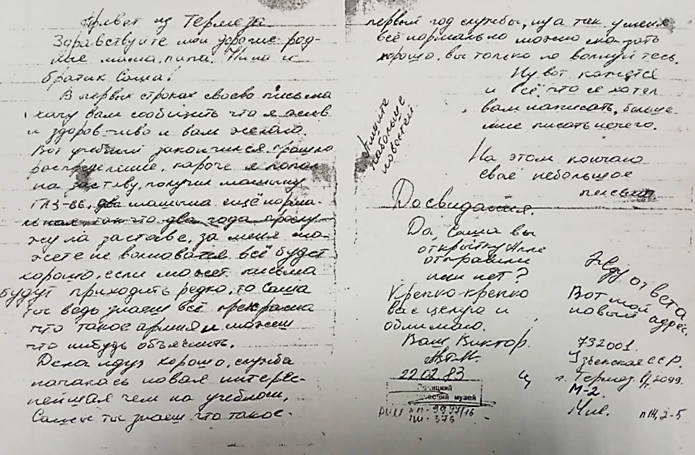 Привет из Термеза
Здравствуйте мои дорогие род
ные мама, папа, Нина и
братик Саша!
В первых строках своево письма
хочу вам сообщить что я жив
и здоров чиво и вам желаю.
Вот учебный закончился прошло
распределение, кароче я попал
на заставу, получил машыну
ГАЗ-66, два машына ещё норма-
льная так что два года прослу-
жу на заставе, за меня мо-
жете не волноватся всё будет
хорошо, если может письма
будут приходить редко, то Саша
ты ведь знаеш всё прекрасно
что такое армия и можеш
что нибудь объяснить.
Дела идут хорошо, служба
началась новая интерес-
нейшая чем на учебном,
Саша ты знаеш что такое-
первый год службы, ну а так у меня
всё нормально можно сказать
хорошо, вы только не волнуйтесь.
Ну вот кажется
и всё что я хотел
вам написать, больше
мне писать нечего.
пишите
побольше
новостей
На этом кончаю
своё небольшое
письмо
Досвидания.
Да, Саша вы
открытку мне
отправили
или нет?
Жду ответа
Крепко-крепко
вас целую и
обнимаю.
Ваш Виктор.
22.02.83
Вот мой
новый адрес.
732001.
Узбекская ССР.
г. Термез
М-2.
музей